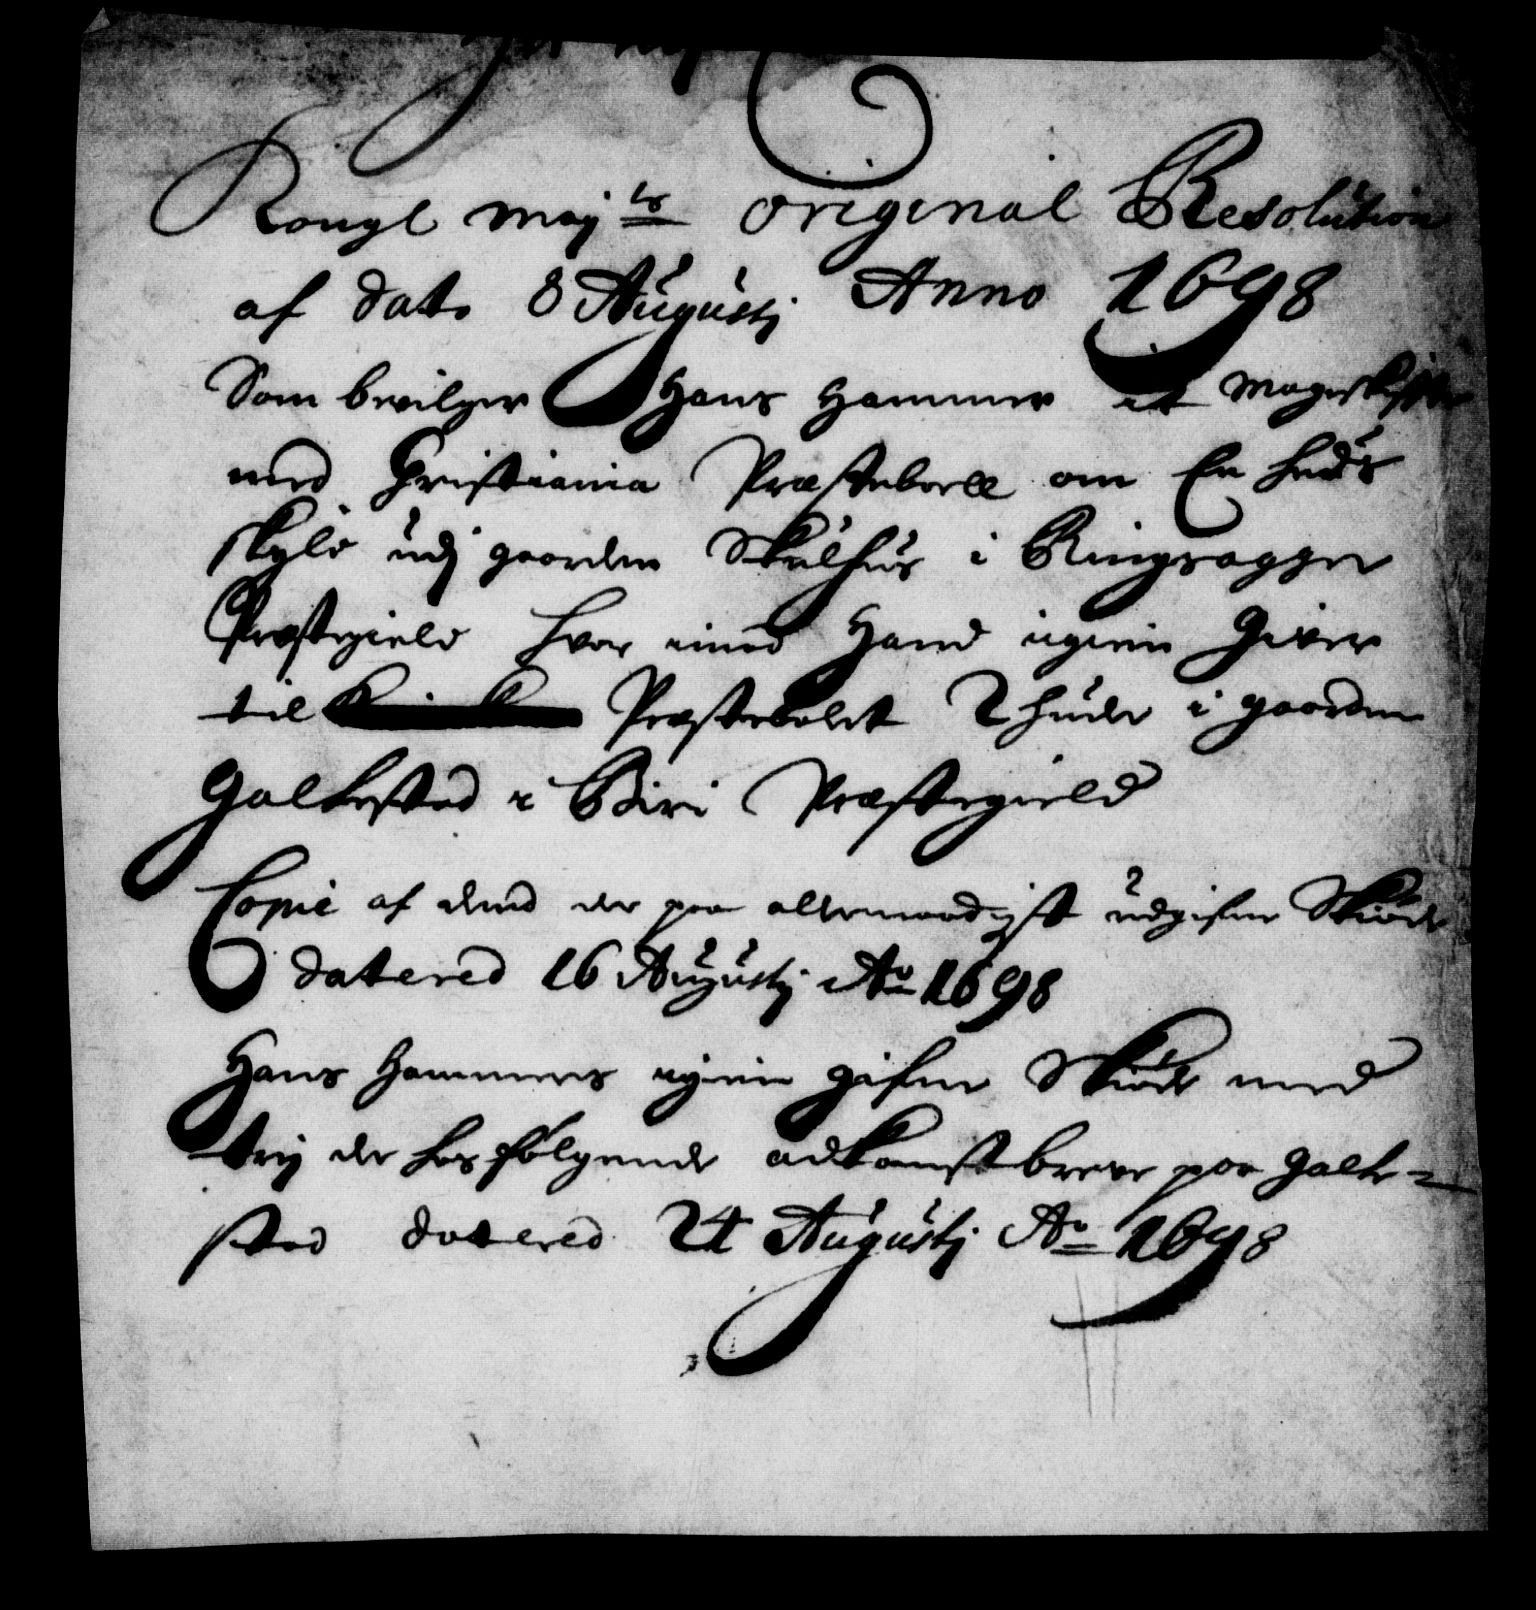 Kongl May:ts original Resolution
af dato 8 Augustj Anno 1698
Som bevilger Hans Hammer it Mageskiffte
med Christiania Præsteboell om En huds
skyld udj gaarden Skulhus i Ringsagger
Præstegield hvor imod Hand igien Giver
til Præstebolet 2 huder i gaarden
Galkestad i Biri Præstegield
Copie af dend der paa allernaadigst udgifne Skiøde
datered 16 Augustj Ao 1698
Hans Hammers igien gifne Skiøde med
trij der hos følgende adkomst breve paa Galke=
stad datered 24 Augustj Ao 1698